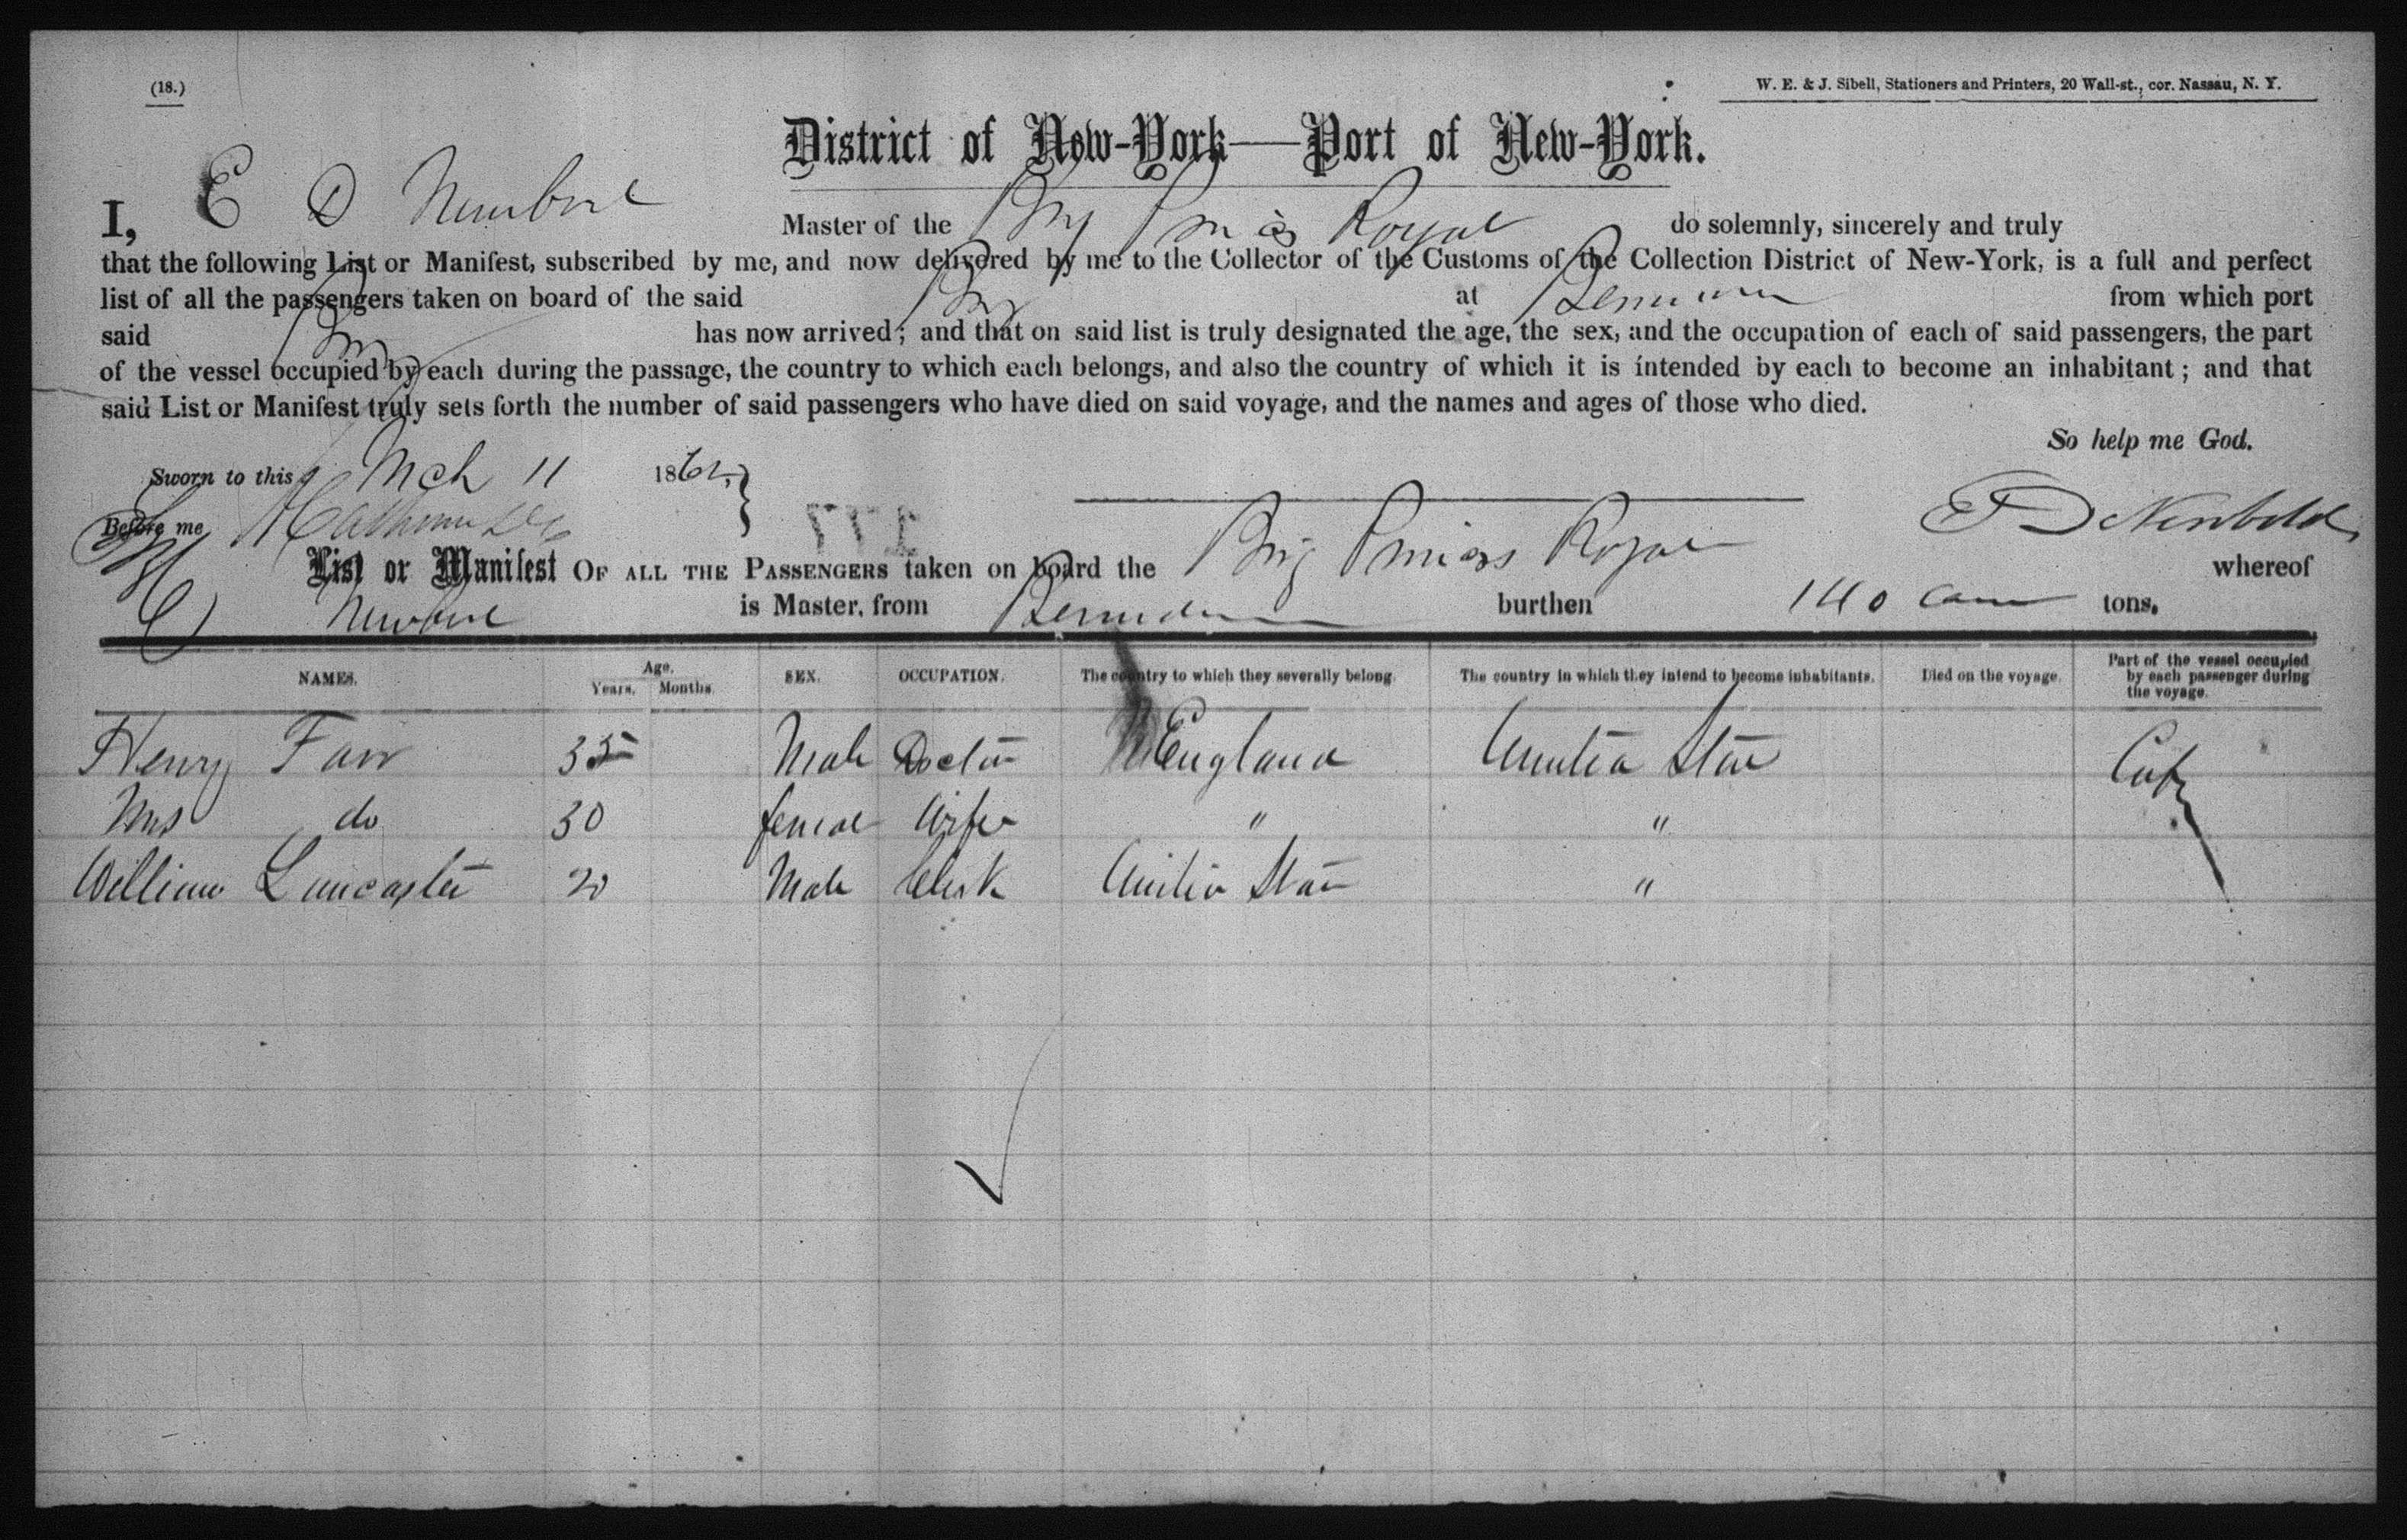 (18.)
W. E. & J. Sibell, Stationers and Printers, 20 Wall-st., cor. Nassau, N. Y.
District of New-York—Port of New-York.
I, E D Newbold Master of the Brig Princess Royal do solemnly, sincerely and truly
that the following List or Manifest, subscribed by me, and now delivered by me to the Collector of the Customs of the Collection District of New-York, is a full and perfect
list of all the passengers taken on board of the said Brig at Bermuda from which port
said Brig has now arrived; and that on said list is truly designated the age, the sex, and the occupation of each of said passengers, the part
of the vessel occupied by each during the passage, the country to which each belongs, and also the country of which it is intended by each to become an inhabitant; and that
said List or Manifest truly sets forth the number of said passengers who have died on said voyage, and the names and ages of those who died.
So help me God.
Sworn to this Mch 11 1862
Before me
E D Newbold
List or Manifest OF ALL THE PASSENGERS taken on board the Brig Princess Royal whereof
Newbold is Master, from Bermuda burthen 140 tons.
NAMES. Age. Years. Months. SEX. OCCUPATION. The country to which they severally belong. The country in which they intend to become inhabitants. Died on the voyage. Part of the vessel occupied by each passenger during the voyage.
Henry Farr 35 Male Doctor England United State Cab
Mrs do 30 female Wife " "
William Lancaster 20 Male Clerk United State "